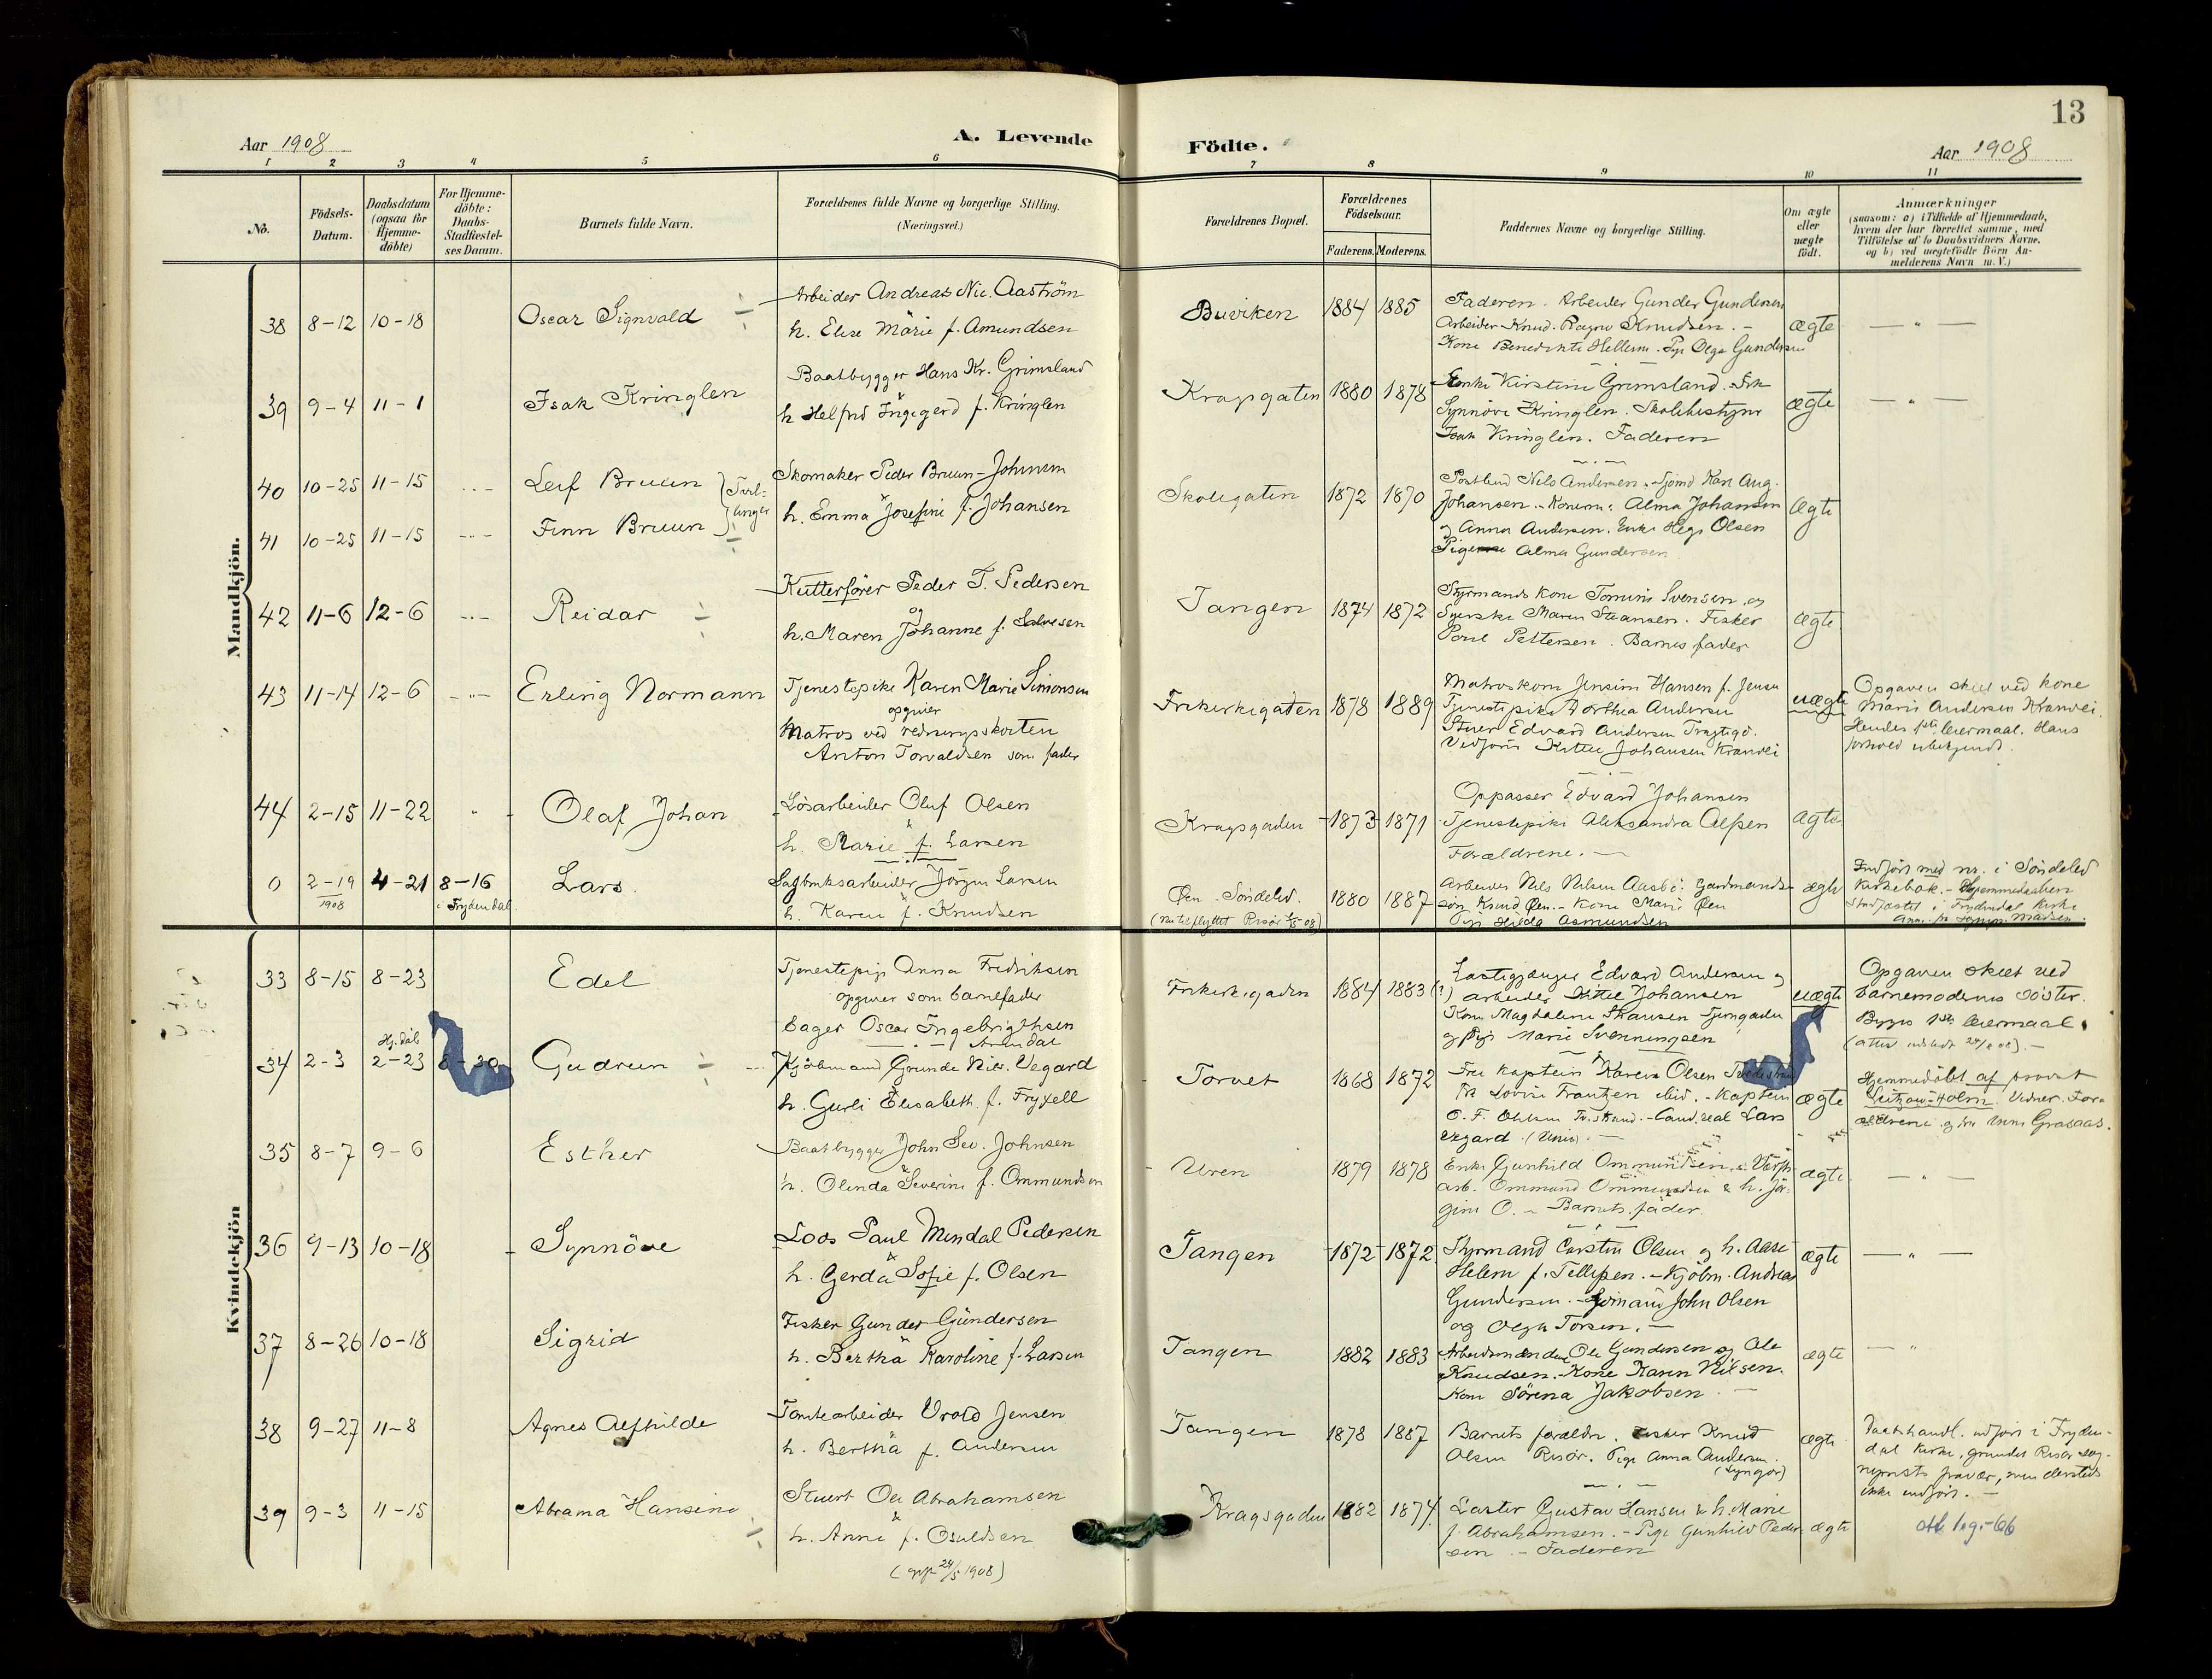 13
Aar 1908
A. Levende
Födte.
Aar 1908
1 2 3 4 5 6 7 8 9 10 11
No.
Födsels-Datum.
Daabsdatum (ogsaa för Hjemme-döbte)
For Hjemme-döbte: Daabs-Stadfæstel-ses Datum.
Barnets fulde Navn.
Forældrenes fulde Navne og borgerlige Stilling.
(Næringsvei.)
Forældrenes Bopæl.
Forældrenes Födselsaar.
Faderens. Moderens.
Faddernes Navne og borgerlige Stilling.
Om ægte eller uægte födt.
Anmærkninger
(saasom: a) i Tilfælde af Hjemmedaab,
hvem der har forrettet samme, med
Tilföielse af to Daabsvidners Navne.
og b) ved uægtefödte Börn An-
melderens Navn m. V.)
Mandkjön.
38 8-12 10-18 Oscar Signvald
Arbeider Andreas Nic. Aaström
h. Elise Marie f. Amundsen
Buviken 1884 1885
Faderen. Arbeider Gunder Gundersen
Arbeider Knud. Ragnv Knudsen. -
Kone Benedikte Hellem. Olga Gundersen
ægte — " —
39 9-4 11-1 Isak Kringlen
Baatbygger Hans Kr. Grimsland
h Helfrid Ingegerd f. Kringlen
Kragsgaten 1880 1878
Enke Kirstine Grimsland. Frk
Synnöve Kringlen. Skolebestyrer
Isak Kringlen. Faderen
ægte — " —
40 10-25 11-15 Leif Bruun
41 10-25 11-15 Finn Bruun
Tvillinger
Skomaker Peder Bruun-Johnsen
h. Emma Josefine f. Johansen
Skolegaten 1872 1870
Postbud Nils Andersen. Sjömd Karl Aug.
Johansen. - Konerne: Alma Johansen
og Anna Andersen. Enke Olsen
Pige Alma Gundersen
ægte
42 11-6 12-6 Reidar
Kutterförer Peder T. Pedersen
og
h. Maren Johanne f. Salvesen
Tangen 1874 1872
Styrmands Kone Svensen og
Syerske Maren . Fisker
Pettersen. Barnets fader
ægte
43 11-14 12-6 Erling Normann
Tjenestepike Karen Marie Simonsen
opgiver
Matros ved redningsskoiten
Anton Torvaldsen som fader
Frikirkegaten 1878 1889
Matroskone Jensine Hansen f. Jensen
Tjenestepike Dorthea Andersen
Stuer Edvard Andersen
Johansen Kranvei
uægte
Opgaven skeet ved kone
Marie Andersen Kranvei.
Hendes 1ste leiermaal. Hans
forhold ubekjendt.
44 2-15 11-22 Olaf Johan
Lösarbeider Oluf Olsen
&
h. Marie f. Larsen
Kragsgaden 1873 1871
Oppasser Edvard Johansen
Tjenestepike Aleksandra Olsen
Forældrene. —
ægte
0 2-19 1908 4-21 8-16 i Frydendal. Lars.
Sagbruksarbeider Jörgen Larsen
h. Karen f. Knudsen
Öen. Söndeled. 1880 1887
Arbeider Nils Nilsen Aasbö. Gardmands-
sön Knud Öen. - Kone Marie Öen
Pige Hilda Asmundsen
ægte
Indfört med nr. i Söndeled
Kirkebok. - Hjemmedaaben
Stadfæstet i Frydendal Kirke
Kvindekjön
33 8-15 8-23 Edel
Tjenestepige Anna Fredriksen
opgiver som barnefader
Bager Oscar Ingebrigthsen
Arendal
Frikirkegaden 1884 1883 (?)
Lastegjænger Edvard Andersen og
arbeider Kittel Johansen
Kone Magdaline
og Pige Marie Svenningsen
uægte
Opgaven skeet ved
barnemoderens söster.
Begges 1ste leiermaal.
34 2-3 Hj. döb 2-23 8-30 Gudrun
Kjöbmand Grunde Nils. Vegard
h. Gurli Elisabeth f. Fryxell
Torvet 1868 1872
Fru kaptein Karen Olsen
Frk Lovise Frantzen ibid. - Kaptein
O. F. Olsen - Cand. real Lars
Vegard. (Univ). —
ægte
Hjemmedöbt af provst
Lützow-Holm. Vidner. For-
ældrene og fru Grasaas.
35 8-7 9-6 Esther
Baatbygger John Sev. Johnsen
h. Olinda Severine f. Ommundsen
Uren 1879 1878
Enke Gunhild Ommundsen.
arb. Ommund Ommundsen & h. Jör-
gine O. - Barnets fader.
ægte — " —
36 9-13 10-18 Synnöve
Loos Paul Mindal Pedersen
&
h. Gerda Sofie f. Olsen
Tangen 1872 1872
Styrmand Carsten Olsen og h. Aase
Helene f. Tellefsen. - Kjöbm. Andreas
Gundersen. - Sömand John Olsen
og Olga Torsen. —
ægte — " —
37 8-26 10-18 Sigrid
Fisker Gunder Gundersen
&
h. Bertha Karoline f. Larsen
Tangen 1882 1883
Arbeidsmændene Ole Gundersen og Ole
Knudsen. - Kone Karen Nilsen.
Kone Sörina Jakobsen. —
ægte — "
38 9-27 11-8 Agnes Alfhilde
Tomtearbeider Jensen
&
h. Bertha f. Andersen
Tangen 1878 1887
Barnets forældre. Fisker Knud
Olsen Risör. Pige Anna Andersen.
(Lyngör)
ægte
Daabshandl. udfört i Fryden-
dal Kirke, grundet Risör sog-
neprests fravær, men dersteds
ikke indfört. —
39 9-3 11-15 Abrama Hansine
Stuert Ole Abrahamsen
&
h. Anne f. Osuldsen
(24/5 1908)
Kragsgaden 1882 1874
Laster Gustav Hansen & h. Marie
f. Abrahamsen. - Pige Gunhild Peder
sen. - Faderen
ægte